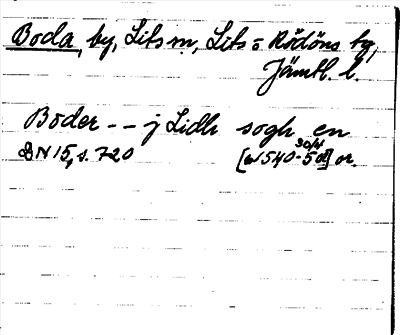 Boda, by, Lits sn, Lits o Rödöns tg,
Jämtl. l.
Boder -- j Lidh sogh en
DN 15, s. 720 [c1540-50 30/4] or.